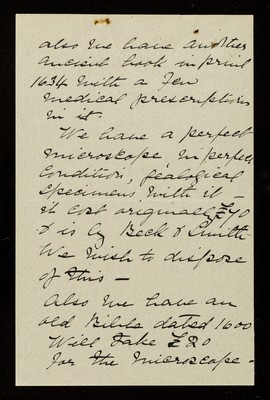 also we have another
ancient book in print
1634 with a few
medical prescriptions
in it.
We have a perfect
microscope, in perfect
condition, geological
specimens with it –
it cost originally £70
& is by Beck & Smith
We wish to dispose
of this –
Also we have an
old Bible dated 1600
Will take £20
for the Microscope –